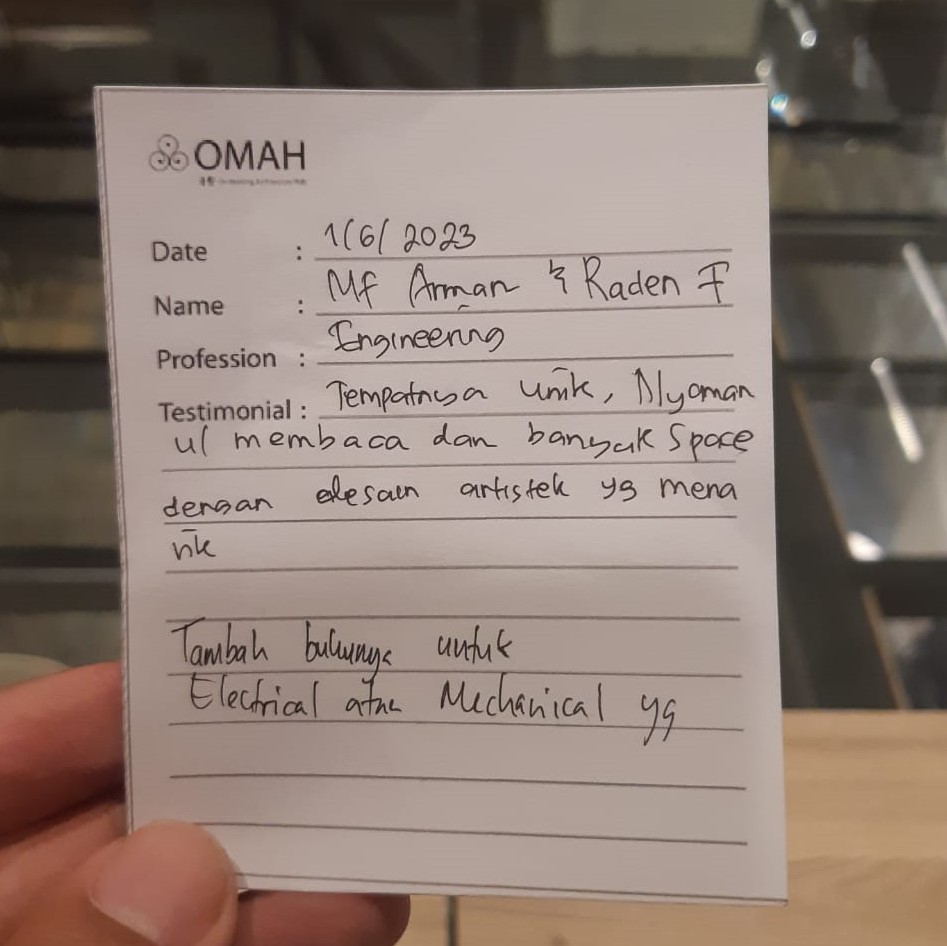 OMAH
Date : 1/6/2023
Name : Mf Arman & Raden F
Profession : Engineering
Testimonial : Tempatnya unik, Nyoman
u/ membaca dan banyak Space
dengan desain artistek yg mena
rik
Tambah bukunya untuk
Electrical atau Mechanical yg